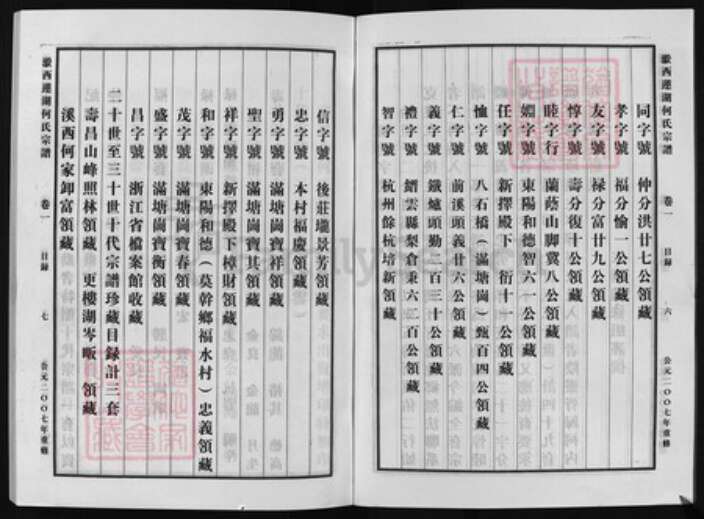 瀫西蓮湖何氏宗譜 卷一 目錄 六 公元二〇〇七年重修
同字號 仲分洪廿七公領藏
孝字號 福分愉一公領藏
友字號 祿分富廿九公領藏
惇字號 壽分復十公領藏
睦字行 蘭蔭山腳冀八公領藏
婣字號 東陽和德智六一公領藏
任字號 新擇殿下 衍十一公領藏
恤字號 八石橋（滿塘崗）甄百四公領藏
仁字號 前溪頭義廿六公領藏
義字號 鐵爐頭勤二百三十公領藏
禮字號 縉雲縣梨倉秉六二百公領藏
智字號 杭州餘杭培新領藏
信字號 後莊壠景芳領藏
忠字號 本村福慶領藏
勇字號 滿塘崗寶祥領藏
聖字號 滿塘崗寶其領藏
祥字號 新擇殿下樟財領藏
和字號 東陽和德（莫幹鄉福水村）忠義領藏
茂字號 滿塘崗寶春領藏
盛字號 滿塘崗寶衡領藏
昌字號 浙江省檔案館收藏
二十世至三十世十代宗譜珍藏目録計三套
壽昌山峰照林領藏 更樓湖岑畈 領藏
溪西何家卸富領藏
瀫西蓮湖何氏宗譜 卷一 目錄 七 公元二〇〇七年重修